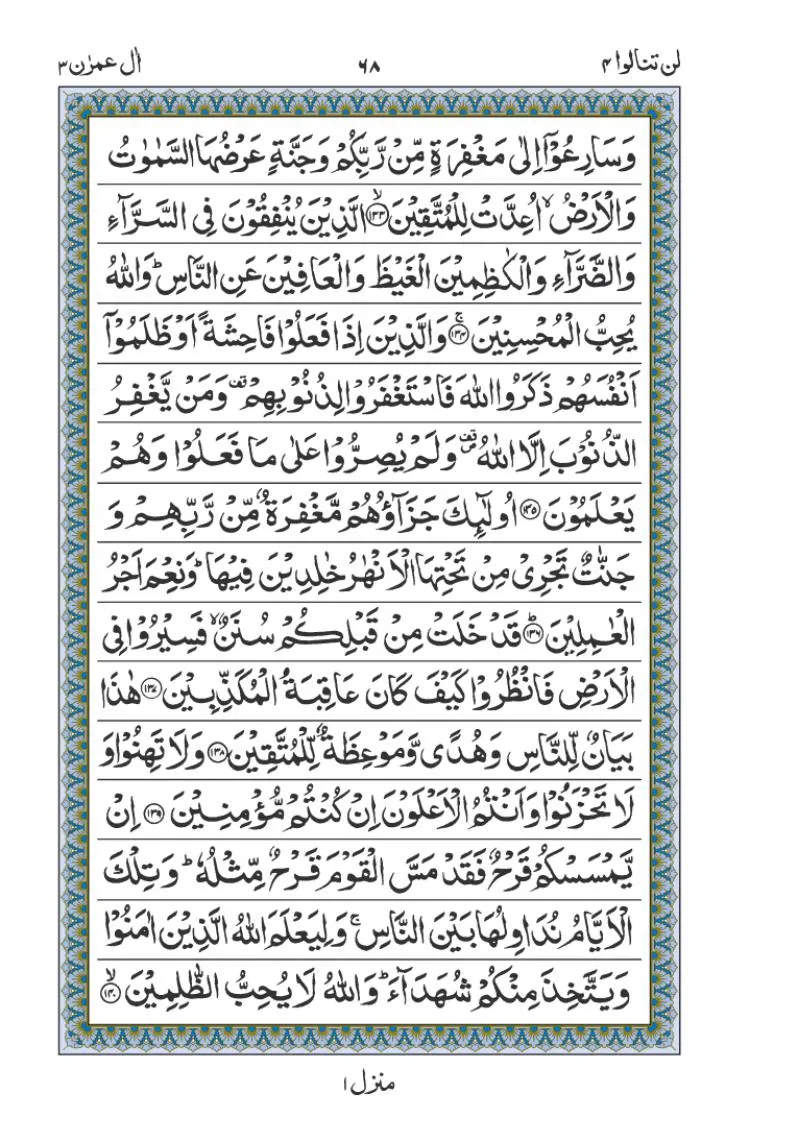 لن تنالوا ۴ ۶۸ اٰل عمرٰن ۳
وَسَارِعُوْۤا اِلٰى مَغْفِرَةٍ مِّنْ رَّبِّكُمْ وَجَنَّةٍ عَرْضُهَا السَّمٰوٰتُ
وَالْاَرْضُ ۙ اُعِدَّتْ لِلْمُتَّقِيْنَ ﴿۱۳۳﴾ۙ الَّذِيْنَ يُنْفِقُوْنَ فِى السَّرَّآءِ
وَالضَّرَّآءِ وَالْكٰظِمِيْنَ الْغَيْظَ وَالْعَافِيْنَ عَنِ النَّاسِ ؕ وَاللّٰهُ
يُحِبُّ الْمُحْسِنِيْنَ ﴿۱۳۴﴾ۚ وَالَّذِيْنَ اِذَا فَعَلُوْا فَاحِشَةً اَوْ ظَلَمُوْۤا
اَنْفُسَهُمْ ذَكَرُوا اللّٰهَ فَاسْتَغْفَرُوْا لِذُنُوْبِهِمْ ۪ وَمَنْ يَّغْفِرُ
الذُّنُوْبَ اِلَّا اللّٰهُ ۪۟ وَلَمْ يُصِرُّوْا عَلٰى مَا فَعَلُوْا وَهُمْ
يَعْلَمُوْنَ ﴿۱۳۵﴾ اُولٰٓئِكَ جَزَآؤُهُمْ مَّغْفِرَةٌ مِّنْ رَّبِّهِمْ وَ
جَنّٰتٌ تَجْرِىْ مِنْ تَحْتِهَا الْاَنْهٰرُ خٰلِدِيْنَ فِيْهَا ؕ وَنِعْمَ اَجْرُ
الْعٰمِلِيْنَ ﴿۱۳۶﴾ؕ قَدْ خَلَتْ مِنْ قَبْلِكُمْ سُنَنٌ ۙ فَسِيْرُوْا فِى
الْاَرْضِ فَانْظُرُوْا كَيْفَ كَانَ عَاقِبَةُ الْمُكَذِّبِيْنَ ﴿۱۳۷﴾ هٰذَا
بَيَانٌ لِّلنَّاسِ وَهُدًى وَّمَوْعِظَةٌ لِّلْمُتَّقِيْنَ ﴿۱۳۸﴾ وَلَا تَهِنُوْا وَ
لَا تَحْزَنُوْا وَاَنْتُمُ الْاَعْلَوْنَ اِنْ كُنْتُمْ مُّؤْمِنِيْنَ ﴿۱۳۹﴾ اِنْ
يَّمْسَسْكُمْ قَرْحٌ فَقَدْ مَسَّ الْقَوْمَ قَرْحٌ مِّثْلُهٗ ؕ وَتِلْكَ
الْاَيَّامُ نُدَاوِلُهَا بَيْنَ النَّاسِ ۚ وَلِيَعْلَمَ اللّٰهُ الَّذِيْنَ اٰمَنُوْا
وَيَتَّخِذَ مِنْكُمْ شُهَدَآءَ ؕ وَاللّٰهُ لَا يُحِبُّ الظّٰلِمِيْنَ ﴿۱۴۰﴾ۙ
منزل ۱